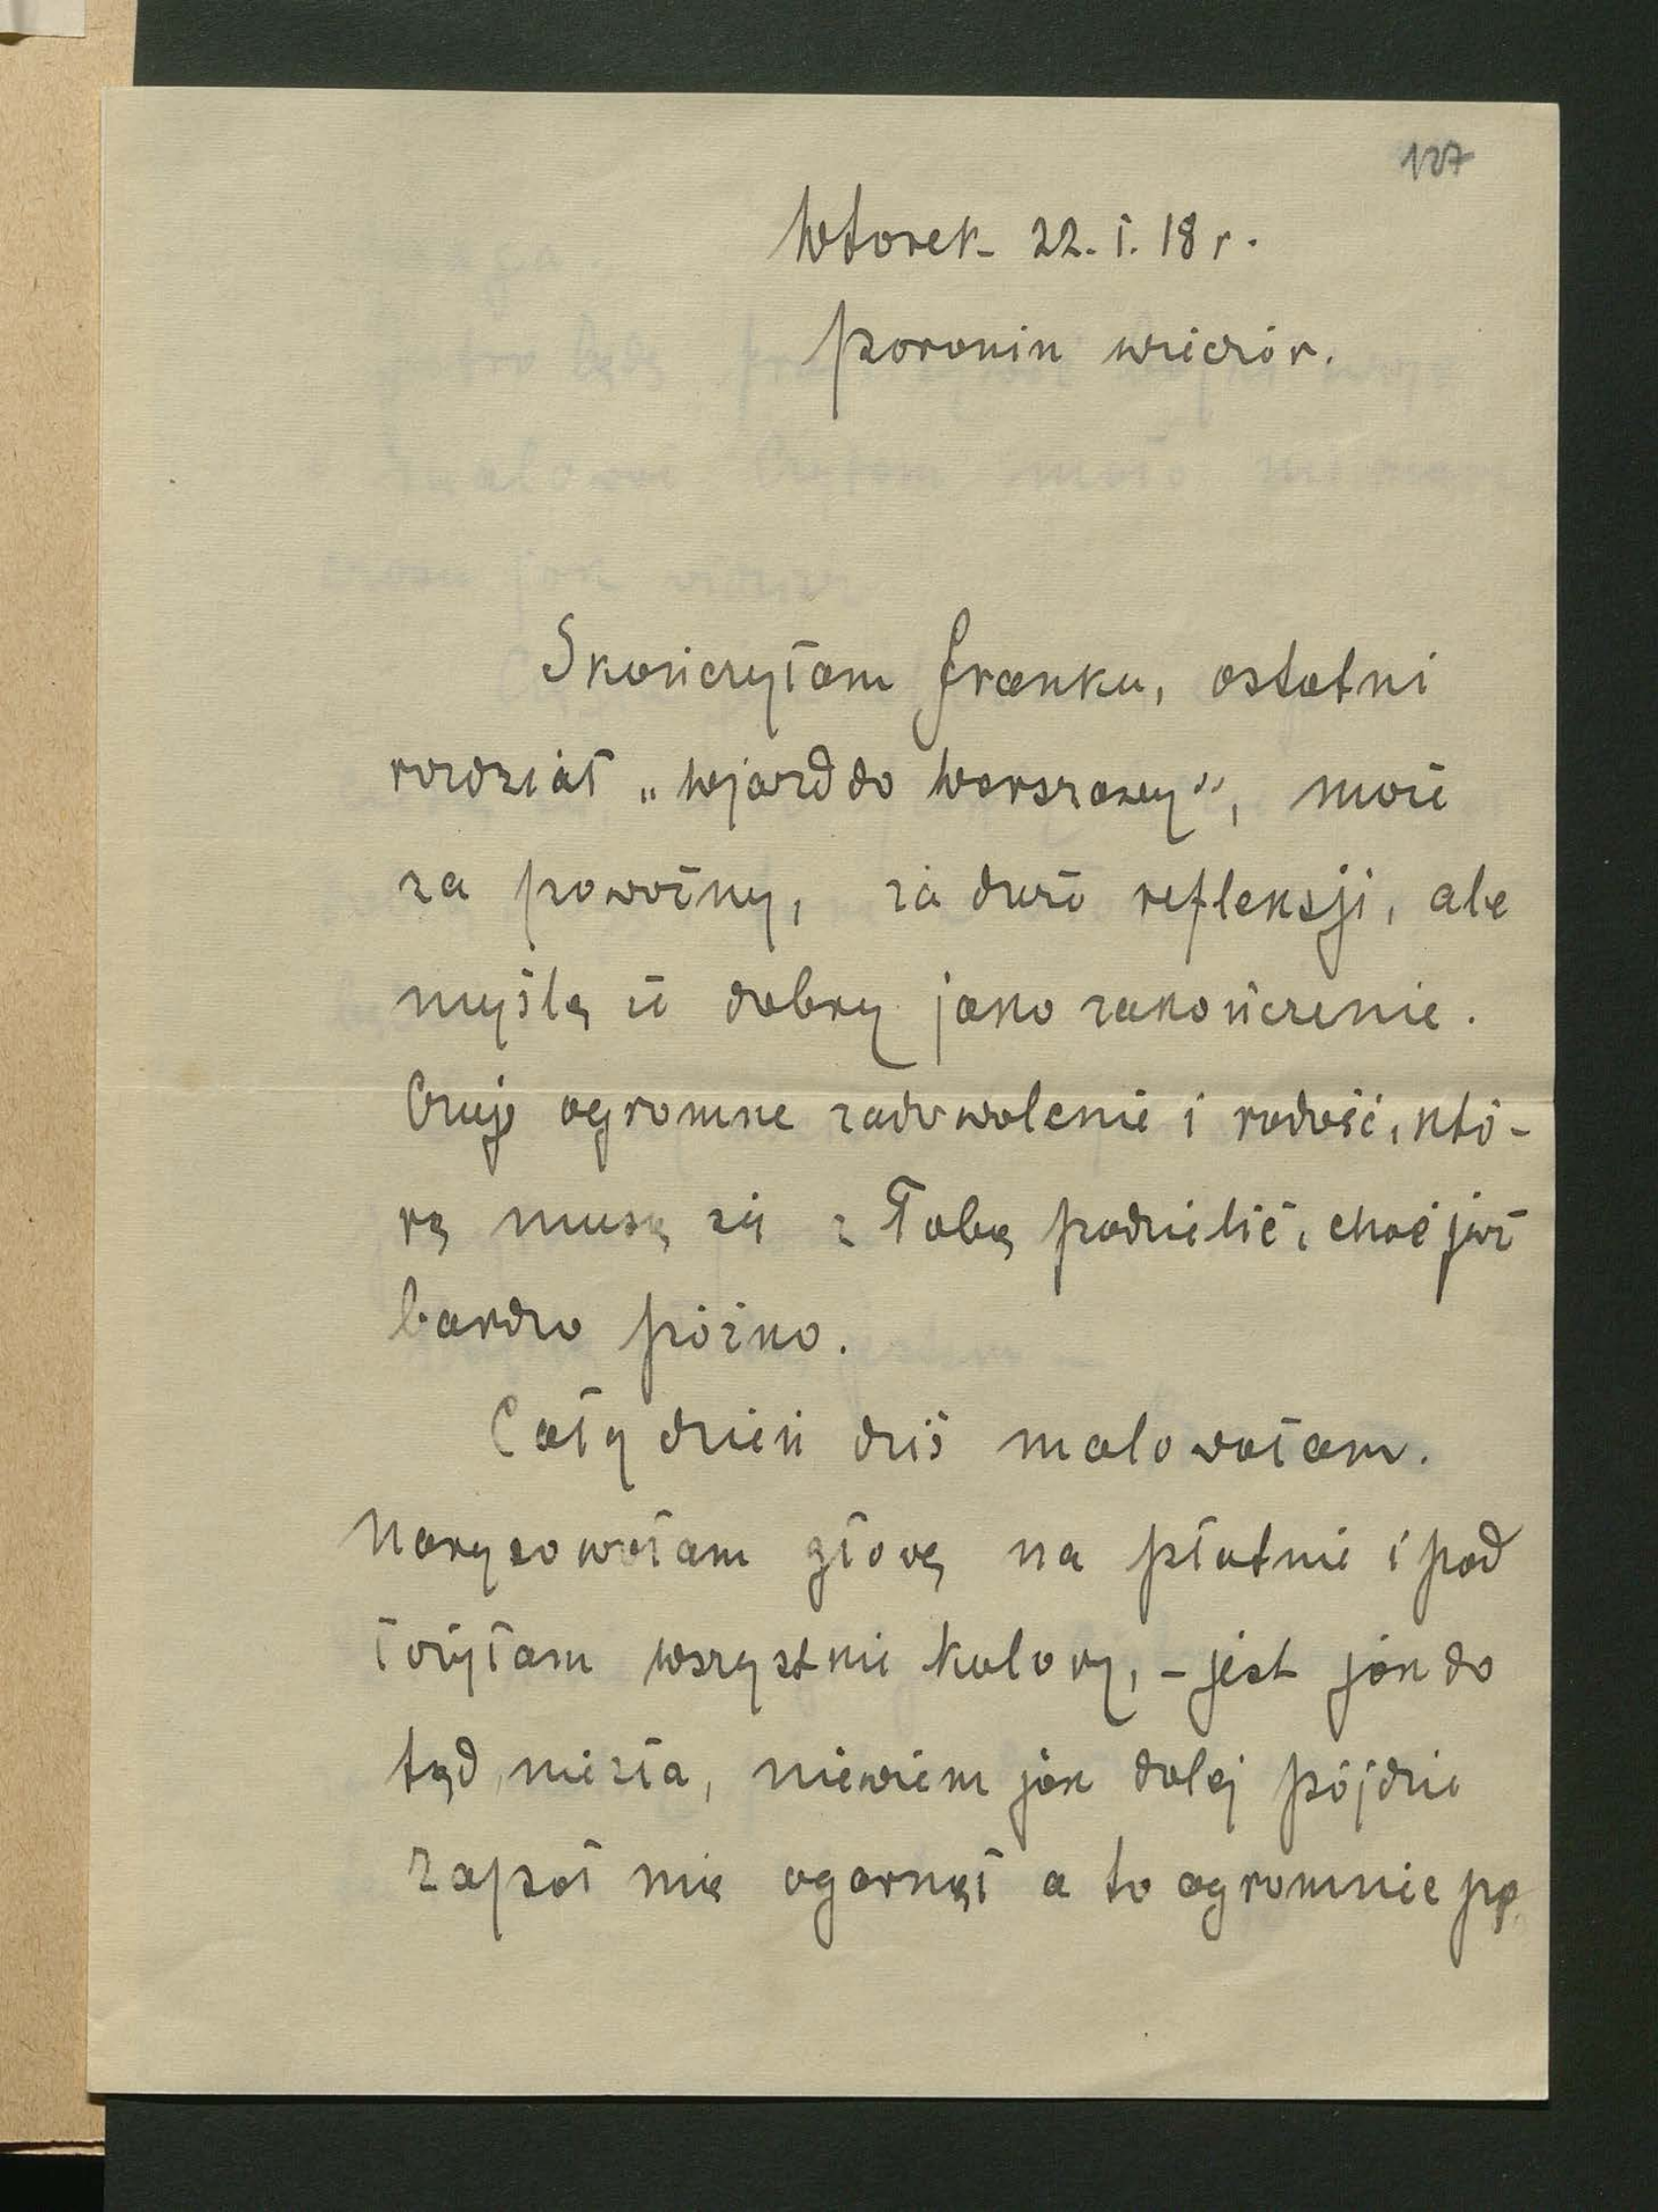 127
Wtorek 22.I.18 r.
Poronin wieczór.
Skończyłam Franku, ostatni
rozdział „Wjazd do Warszawy”, może
za poważny, za dużo refleksji, ale
myślę że dobry jako zakończenie.
Czuję ogromne zadowolenie i radość, któ-
rą muszę się z Tobą podzielić, choć już
bardzo późno.
Cały dzień dziś malowałam.
Narysowałam głowę na płótnie i pod
łożyłam wszystkie kolory, – jest jak do
tąd niezła, niewiem jak dalej pójdzie
Zapał mię ogarnął a to ogromnie